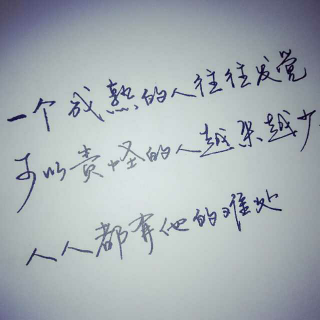 一个成熟的人往往发觉
可以责怪的人越来越少
人人都有他的难处